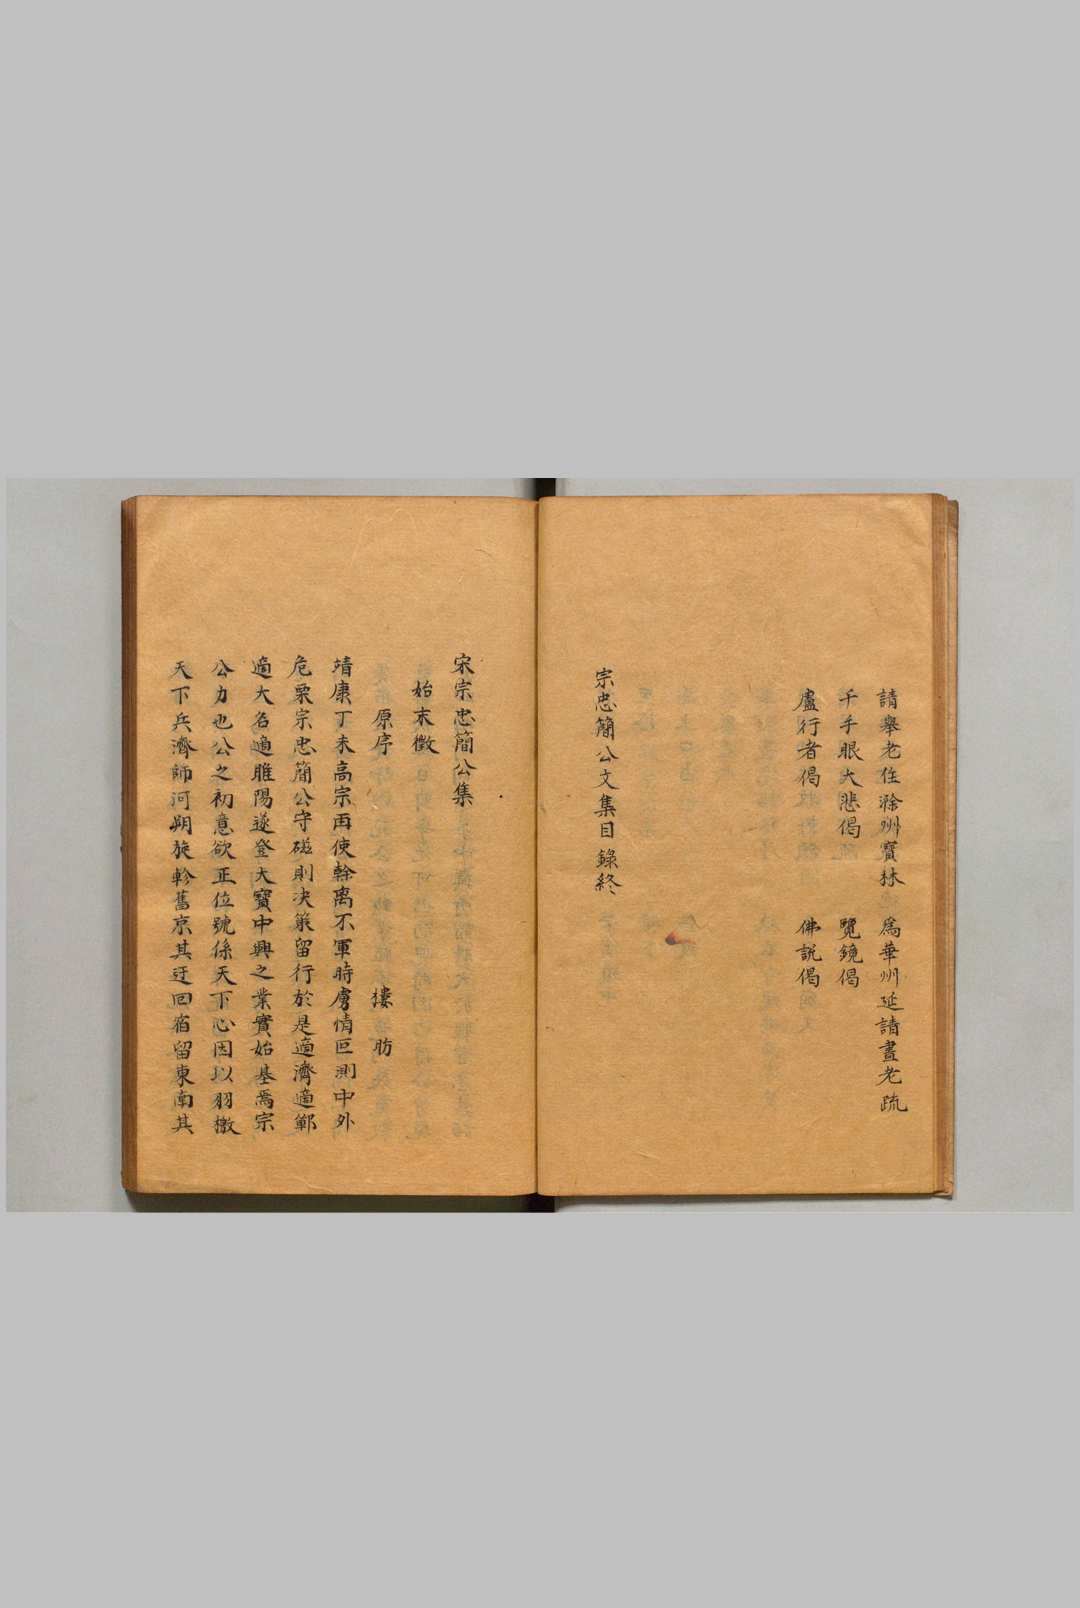 請舉老住滁州寶林　為華州延請晝老疏
千手眼大悲偈　覽鏡偈
盧行者偈　佛說偈
宗忠簡公文集目錄終
宋宗忠簡公集
始末徵
原序　樓昉
靖康丁未高宗再使斡离不軍時虜情叵測中外
危栗宗忠簡公守磁則决策留行於是適濟適鄆
適大名適睢陽遂登大寶中興之業實始基焉宗
公力也公之初意欲正位號係天下心因以羽檄
天下兵濟師河朔旋軫舊京其迂回宿留東南其